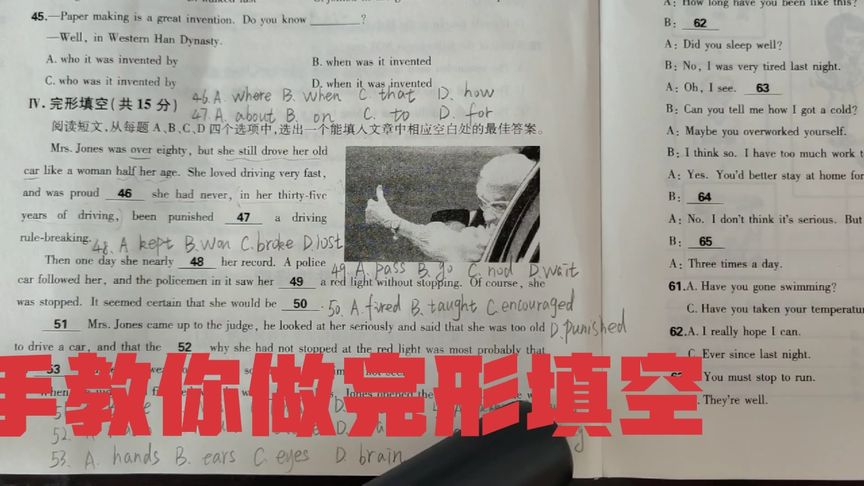 45.—Paper making is a great invention. Do you know ________?
—Well, in Western Han Dynasty.
A. who it was invented by B. when was it invented
C. who was it invented by D. when it was invented
46.A. where B. when C. that D. how
Ⅳ. 完形填空(共 15 分)
47.A. about B. on C. to D. for
阅读短文,从每题 A、B、C、D 四个选项中,选出一个能填入文章中相应空白处的最佳答案。
Mrs. Jones was over eighty, but she still drove her old
car like a woman half her age. She loved driving very fast,
and was proud 46 she had never, in her thirty-five
years of driving, been punished 47 a driving
rule-breaking.
48. A kept B. Won C. broke D. lost
Then one day she nearly 48 her record. A police
49. A. pass B. go C. nod D. wait
car followed her, and the policemen in it saw her 49 a red light without stopping. Of course, she
was stopped. It seemed certain that she would be 50 .
50. A. fired B. taught C. encouraged
D. punished
51 Mrs. Jones came up to the judge, he looked at her seriously and said that she was too old
to drive a car, and that the 52 why she had not stopped at the red light was most probably that
手教你做完形填空
53. A. hands B. ears C. eyes D. brain
A: How long have you been like this?
B: 62
A: Did you sleep well?
B: No, I was very tired last night.
A: Oh, I see. 63
B: Can you tell me how I got a cold?
A: Maybe you overworked yourself.
B: I think so. I have too much work
A: Yes. You'd better stay at home for
B: 64
A: No. I don't think it's serious. But
B: 65
A: Three times a day.
61.A. Have you gone swimming?
C. Have you taken your
62.A. I really hope I can.
C. Ever since last night.
You must stop to run.
They're well.